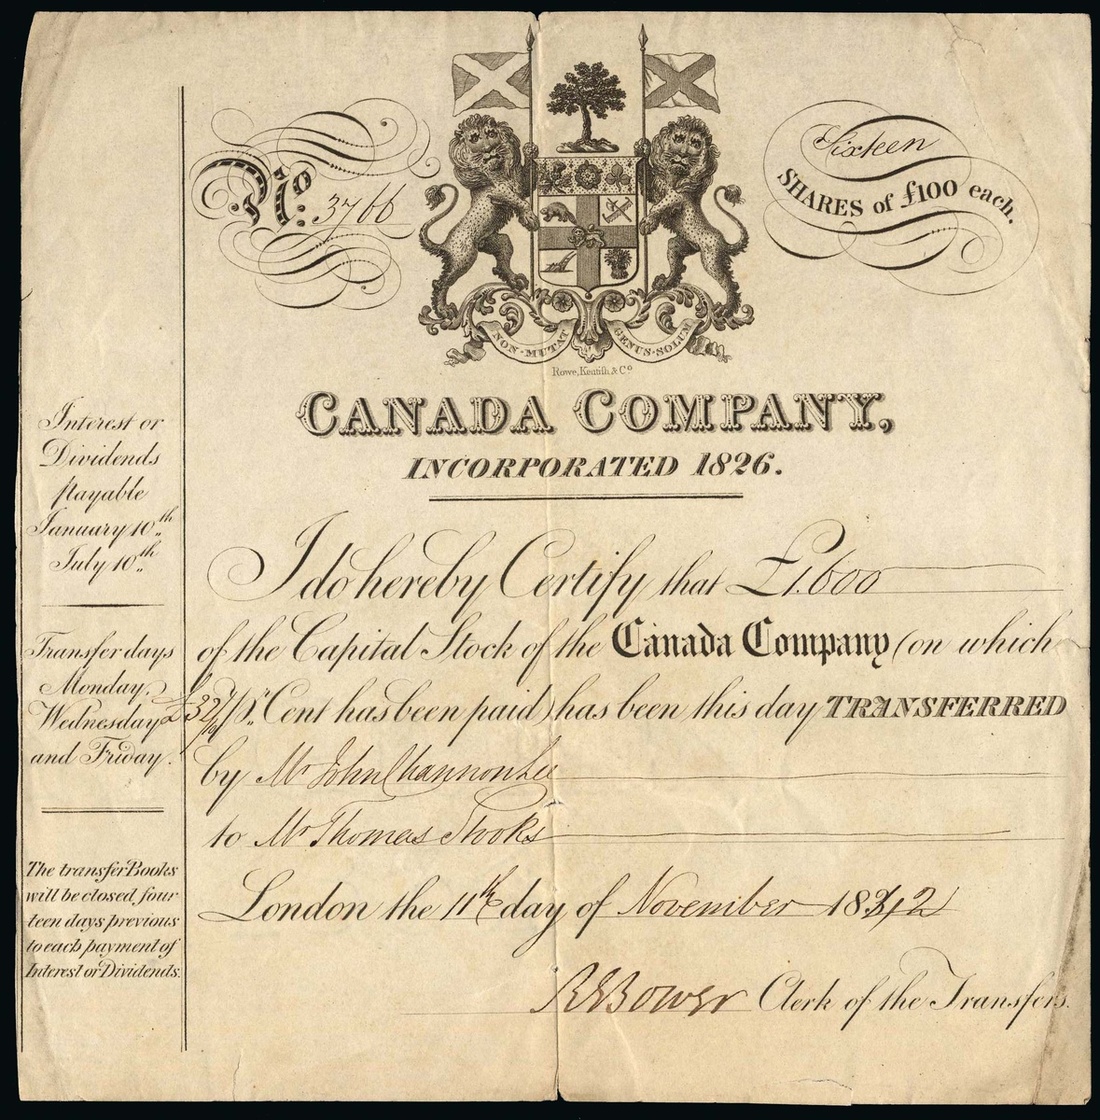 No. 3766
Sixteen
SHARES of £100 each.
NON·MUTAT GENUS·SOLUM
Rowe, Kentish, & Co.
CANADA COMPANY,
INCORPORATED 1826.
Interest or
Dividends
payable
January 10th
July 10th
Transfer days
Monday,
Wednesday
and Friday.
The transfer Books
will be closed four
teen days previous
to each payment of
Interest or Dividends.
I do hereby Certify that £1,600
of the Capital Stock of the Canada Company (on which
£32 p Cent has been paid) has been this day TRANSFERRED
by Mr John Channon Lee
to Mr Thomas Stooks
London the 11th day of November 1842
Clerk of the Transfers.